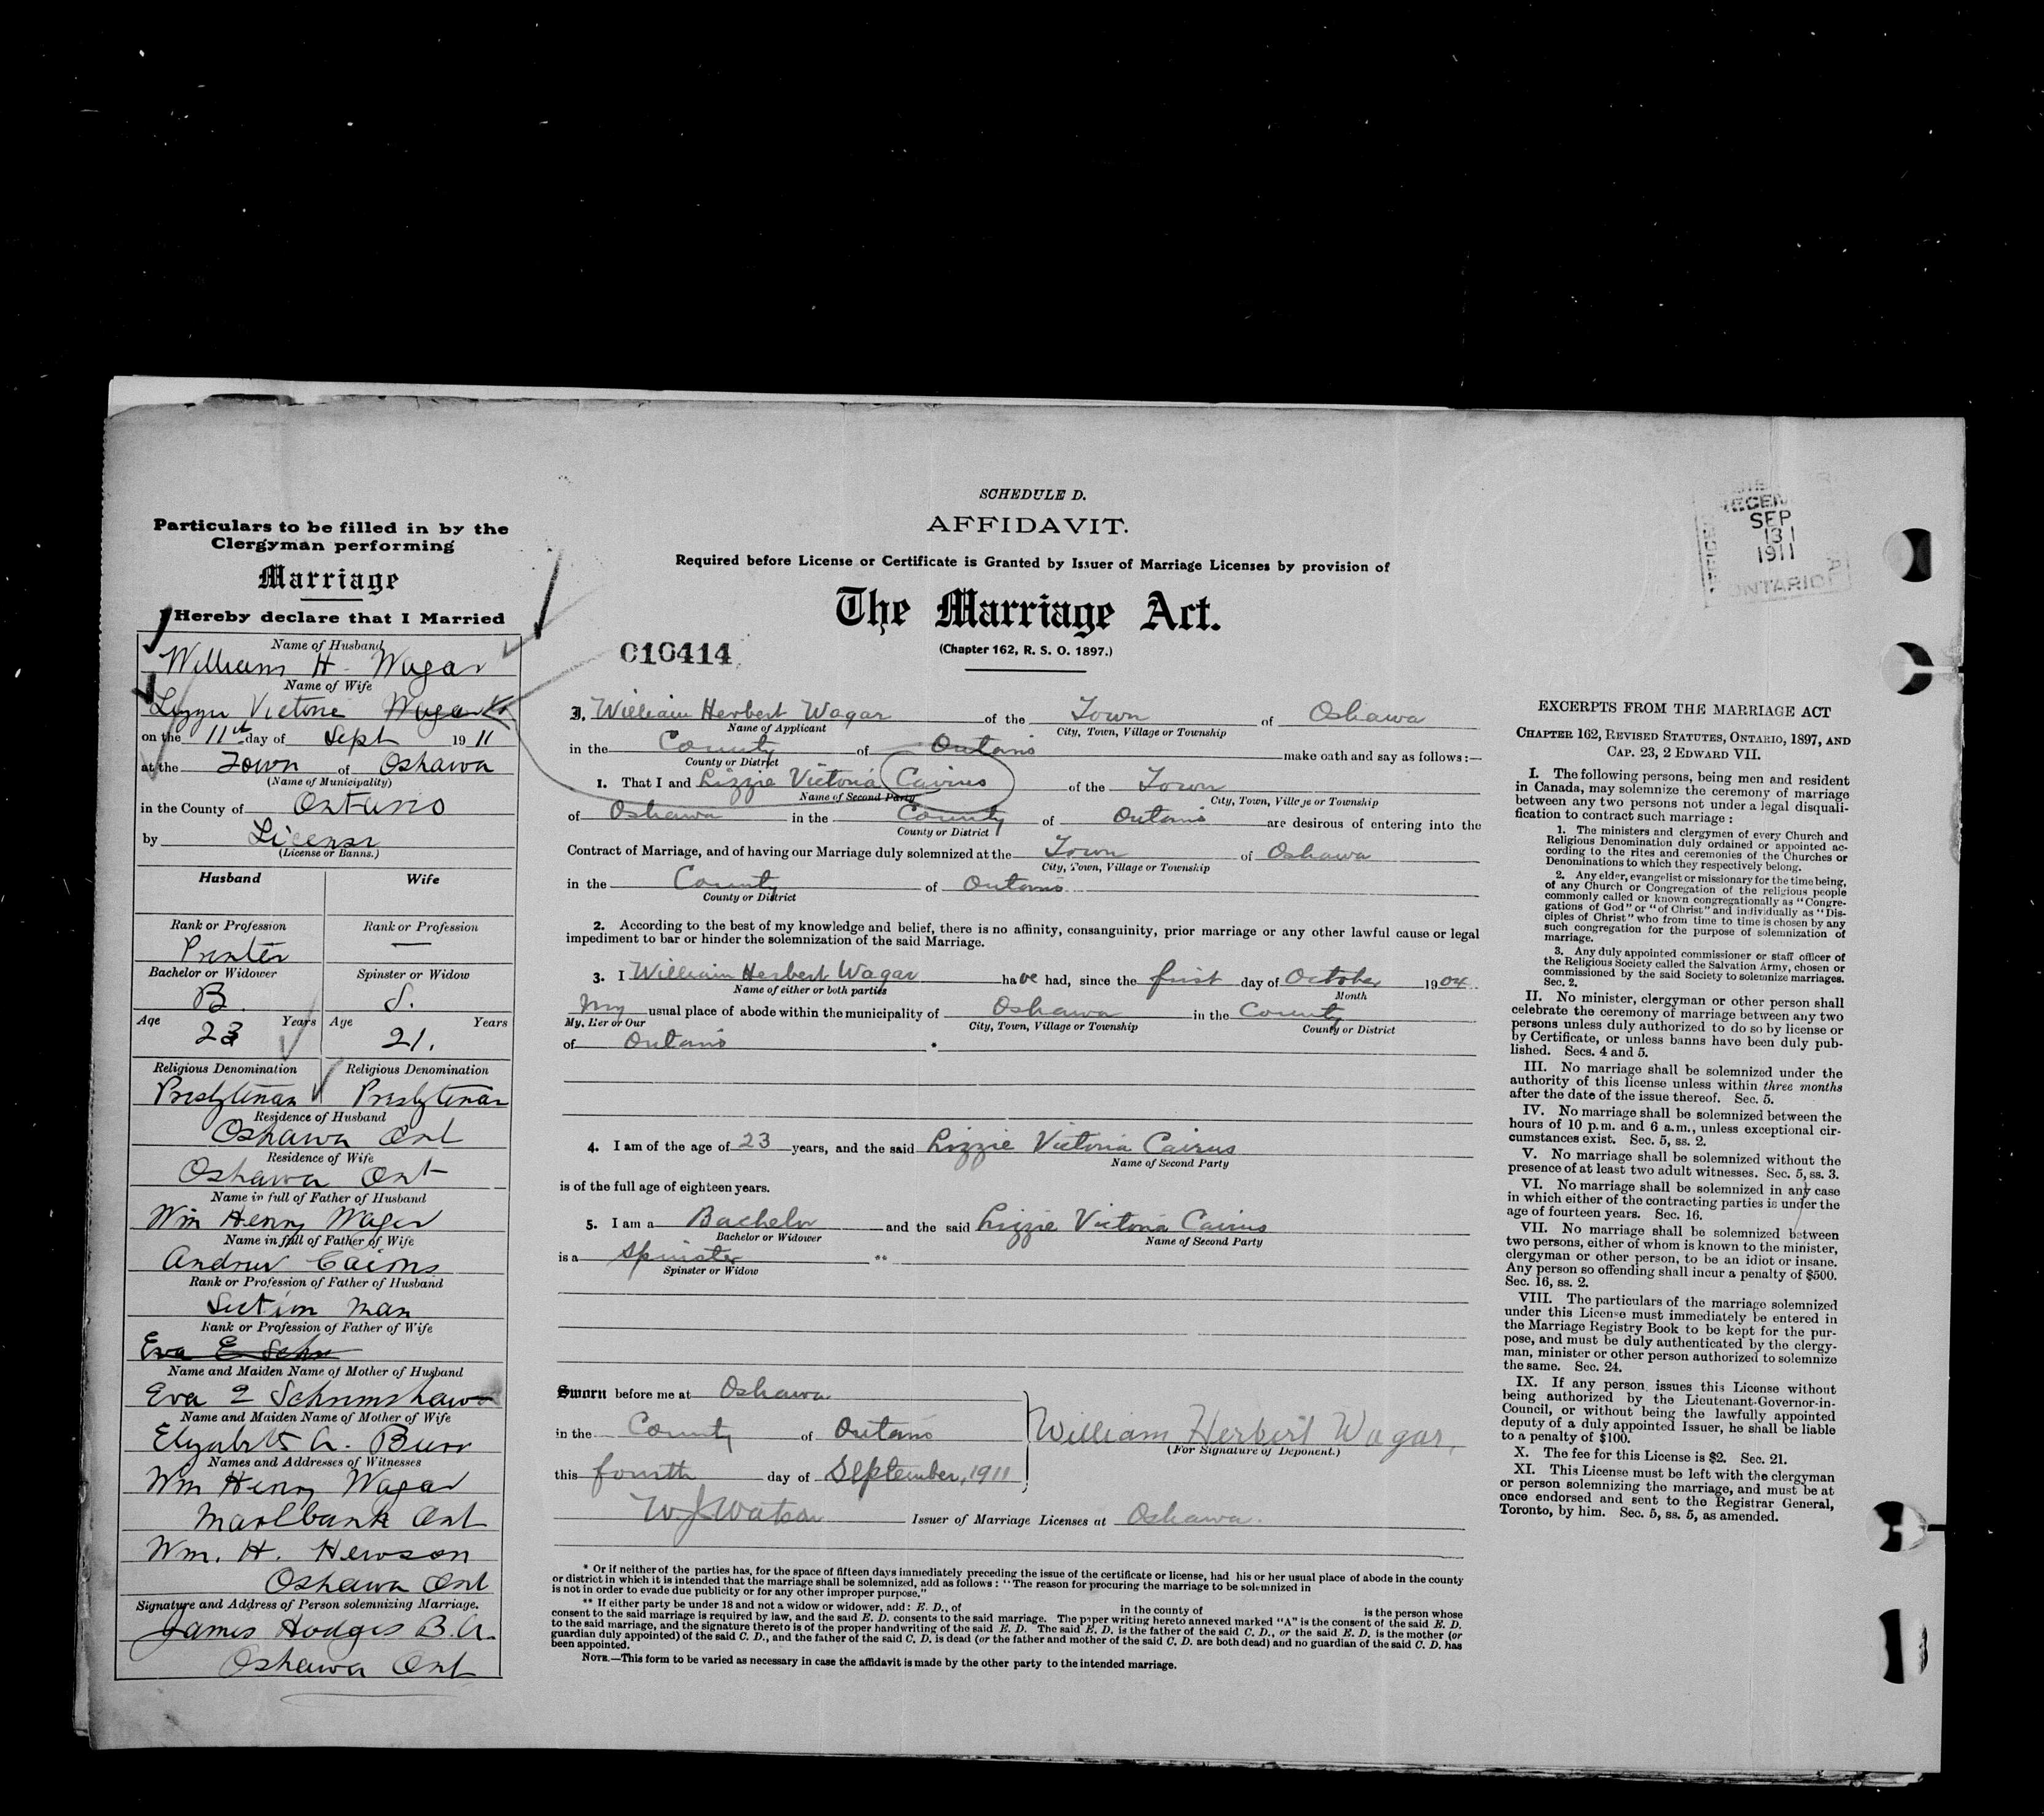 Particulars to be filled in by the
Clergyman performing
Marriage
I Hereby declare that I Married
Name of Husband
William H. Wagar
Name of Wife
Lizzie Victoria Wagar
on the 11th day of Sept 1911
at the Town of Oshawa
(Name of Municipality)
in the County of Ontario
by License
(License or Banns.)
Husband Wife
Rank or Profession Rank or Profession
Printer —
Bachelor or Widower Spinster or Widow
B. S.
Age Years Age Years
23 21.
Religious Denomination Religious Denomination
Presbyterian Presbyterian
Residence of Husband
Oshawa Ont
Residence of Wife
Oshawa Ont
Name in full of Father of Husband
Wm Henry Wagar
Name in full of Father of Wife
Andrew Cairns
Rank or Profession of Father of Husband
Section man
Rank or Profession of Father of Wife
Eva E Schr
Name and Maiden Name of Mother of Husband
Eva E Schrimshaw
Name and Maiden Name of Mother of Wife
Elizabeth A. Burr
Names and Addresses of Witnesses
Wm Henry Wagar
Marlbank Ont
Wm. H. Hewson
Oshawa Ont
Signature and Address of Person solemnizing Marriage.
James Hodges B.A.
Oshawa Ont
SCHEDULE D.
AFFIDAVIT.
Required before License or Certificate is Granted by Issuer of Marriage Licenses by provision of
The Marriage Act.
010414
(Chapter 162, R. S. O. 1897.)
I, William Herbert Wagar of the Town of Oshawa
Name of Applicant City, Town, Village or Township
in the County of Ontario make oath and say as follows:—
County or District
1. That I and Lizzie Victoria Cairns of the Town
Name of Second Party City, Town, Village or Township
of Oshawa in the County of Ontario are desirous of entering into the
County or District
Contract of Marriage, and of having our Marriage duly solemnized at the Town of Oshawa
City, Town, Village or Township
in the County of Ontario
County or District
2. According to the best of my knowledge and belief, there is no affinity, consanguinity, prior marriage or any other lawful cause or legal
impediment to bar or hinder the solemnization of the said Marriage.
3. I William Herbert Wagar have had, since the first day of October 1904
Name of either or both parties Month
My usual place of abode within the municipality of Oshawa in the County
My, Her or Our City, Town, Village or Township County or District
of Ontario
4. I am of the age of 23 years, and the said Lizzie Victoria Cairns
Name of Second Party
is of the full age of eighteen years.
5. I am a Bachelor and the said Lizzie Victoria Cairns
Bachelor or Widower Name of Second Party
is a Spinster **
Spinster or Widow
Sworn before me at Oshawa
in the County of Ontario
William Herbert Wagar.
(For Signature of Deponent.)
this fourth day of September, 1911
W. J. Watson Issuer of Marriage Licenses at Oshawa.
* Or if neither of the parties has, for the space of fifteen days immediately preceding the issue of the certificate or license, had his or her usual place of abode in the county
or district in which it is intended that the marriage shall be solemnized, add as follows: "The reason for procuring the marriage to be solemnized in
is not in order to evade due publicity or for any other improper purpose."
** If either party be under 18 and not a widow or widower, add: E. D., of in the county of is the person whose
consent to the said marriage is required by law, and the said E. D. consents to the said marriage. The paper writing hereto annexed marked "A" is the consent of the said E. D.
to the said marriage, and the signature thereto is of the proper handwriting of the said E. D. The said E. D. is the father of the said C. D., or the said E. D. is the mother (or
guardian duly appointed) of the said C. D., and the father of the said C. D. is dead (or the father and mother of the said C. D. are both dead) and no guardian of the said C. D. has
been appointed.
NOTE.—This form to be varied as necessary in case the affidavit is made by the other party to the intended marriage.
SEP
131
1911
ONTARIO
EXCERPTS FROM THE MARRIAGE ACT
CHAPTER 162, REVISED STATUTES, ONTARIO, 1897, AND
CAP. 23, 2 EDWARD VII.
I. The following persons, being men and resident
in Canada, may solemnize the ceremony of marriage
between any two persons not under a legal disquali-
fication to contract such marriage:
1. The ministers and clergymen of every Church and
Religious Denomination duly ordained or appointed ac-
cording to the rites and ceremonies of the Churches or
Denominations to which they respectively belong.
2. Any elder, evangelist or missionary for the time being,
of any Church or Congregation of the religious people
commonly called or known congregationally as "Congre-
gations of God" or "of Christ" and individually as "Dis-
ciples of Christ" who from time to time is chosen by any
such congregation for the purpose of solemnization of
marriage.
3. Any duly appointed commissioner or staff officer of
the Religious Society called the Salvation Army, chosen or
commissioned by the said Society to solemnize marriages.
Sec. 2.
II. No minister, clergyman or other person shall
celebrate the ceremony of marriage between any two
persons unless duly authorized to do so by license or
by Certificate, or unless banns have been duly pub-
lished. Secs. 4 and 5.
III. No marriage shall be solemnized under the
authority of this license unless within three months
after the date of the issue thereof. Sec. 5.
IV. No marriage shall be solemnized between the
hours of 10 p.m. and 6 a.m., unless exceptional cir-
cumstances exist. Sec. 5, ss. 2.
V. No marriage shall be solemnized without the
presence of at least two adult witnesses. Sec. 5, ss. 3.
VI. No marriage shall be solemnized in any case
in which either of the contracting parties is under the
age of fourteen years. Sec. 16.
VII. No marriage shall be solemnized between
two persons, either of whom is known to the minister,
clergyman or other person, to be an idiot or insane.
Any person so offending shall incur a penalty of $500.
Sec. 16, ss. 2.
VIII. The particulars of the marriage solemnized
under this License must immediately be entered in
the Marriage Registry Book to be kept for the pur-
pose, and must be duly authenticated by the clergy-
man, minister or other person authorized to solemnize
the same. Sec. 24.
IX. If any person issues this License without
being authorized by the Lieutenant-Governor-in-
Council, or without being the lawfully appointed
deputy of a duly appointed Issuer, he shall be liable
to a penalty of $100.
X. The fee for this License is $2. Sec. 21.
XI. This License must be left with the clergyman
or person solemnizing the marriage, and must be at
once endorsed and sent to the Registrar General,
Toronto, by him. Sec. 5, ss. 5, as amended.